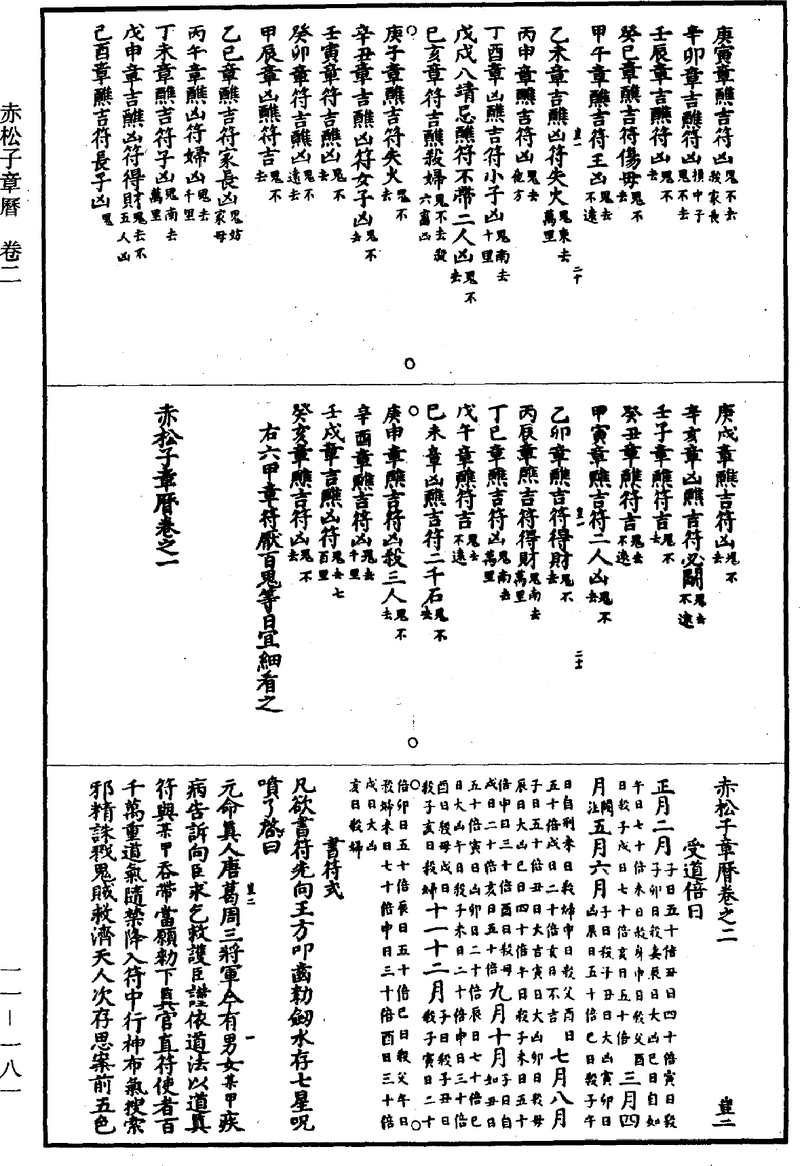 赤松子章曆 卷二
庚寅章醮吉符凶鬼不去殺家長
辛卯章吉醮符凶鬼不去損中子
壬辰章吉醮符凶鬼不去
癸巳章醮吉符傷母鬼不去
甲午章醮吉符王凶鬼去不遠
乙未章吉醮凶符失火鬼東去萬里
丙申章醮吉符凶鬼去他方
丁酉章凶醮吉符小子凶鬼南去十里
戊戌八請忌醮符不帶二人凶鬼不去
己亥章符吉醮殺婦鬼不去殺六畜凶
庚子章醮吉符失火鬼不去
辛丑章吉醮凶符女子凶鬼不去
壬寅章符吉醮凶鬼不去
癸卯章符吉醮凶鬼不遠去
甲辰章凶醮符吉鬼不去
乙巳章醮吉符家長凶鬼妨家母
丙午章醮凶符婦凶鬼去千里
丁未章醮吉符子凶鬼南去萬里
戊申章吉醮凶符得財鬼去不五人凶
己酉章醮吉符長子凶鬼
庚戌章醮吉符凶鬼不去
辛亥章凶醮吉符必鬭鬼去不遠
壬子章醮符吉鬼不去
癸丑章醮符吉鬼去不遠
甲寅章醮吉符二人凶鬼不去
乙卯章醮吉符得財鬼不去
丙辰章醮吉符得財鬼南去萬里
丁巳章醮吉符凶鬼南去萬里
戊午章醮符吉鬼去不遠
己未章凶醮吉符二千石鬼不去
庚申章醮吉符凶殺三人鬼不去
辛酉章醮吉符凶鬼去千里
壬戌章吉醮凶符鬼去七百里
癸亥章醮吉符凶鬼不去
右六甲章符厭百鬼等日宜細看之
赤松子章曆卷之一
赤松子章曆卷之二
受道倍日
正月二月子日五十倍丑日四十倍寅日殺子卯日殺妻辰日大凶巳日自如午日七十倍未日殺身申日殺父酉日殺子戌日七十倍亥日五十倍三月四
月闕注五月六月子日殺子丑日大凶寅卯日凶辰日五十倍巳日殺子午日自刑未日殺婦申日殺父酉日五十倍戌日二十倍亥日不吉七月八月
子日五十倍丑日大吉寅日大凶卯日殺母辰日大凶巳日四十倍午日殺子未日五十倍申日三十倍酉日殺母戌日二十倍亥日五十倍九月十月子日自如丑日五十倍寅日凶卯日二十倍辰日七十倍巳日大凶午日殺子未日二十倍申日三十倍酉日殺母戌日殺子亥日殺婦十一十二月子日殺子丑日殺子寅日二十倍卯日五十倍辰日五十倍巳日殺父午日殺婦未日七十倍申日三十倍酉日三十倍戌日大凶亥日殺婦
書符式
凡欲書符先向王方叩齒勑劒水存七星呪
噴了啓曰
元命真人唐葛周三將軍今有男女某甲疾
病告訴向臣求乞救護臣謹依道法以道真
符與某甲吞帶當願勑下真官直符使者百
千萬重道氣隨禁降入符中行神布氣搜索
邪精誅戮鬼賊救濟天人次存思案前五色
一一—一八一